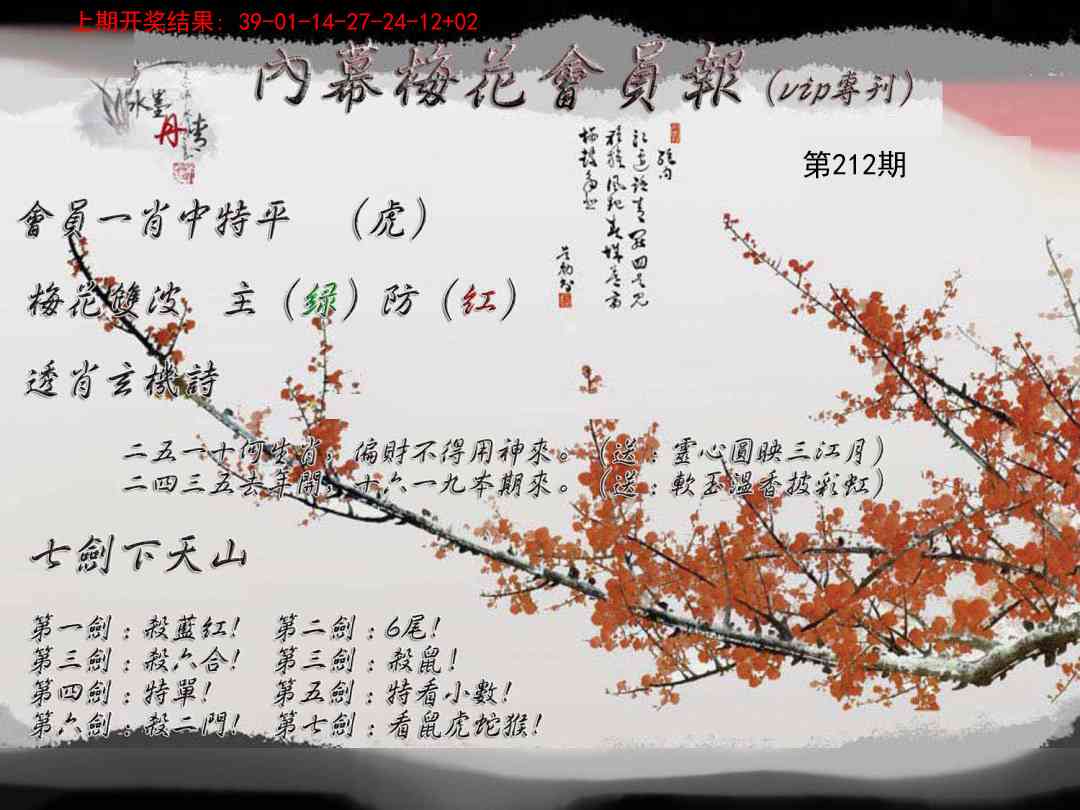 上期开奖结果: 39-01-14-27-24-12+02
內幕梅花會員報（vip專刊）
水墨丹青
第212期
會員一肖中特平 （虎）
梅花雙波 主（绿）防（红）
透肖玄機詩
二五一十何生肖，偏財不得用神來。（送：靈心圓映三江月）
二四三五去年開，十六一九本期來。（送：軟玉溫香披彩虹）
七劍下天山
第一劍：殺藍紅！ 第二劍：6尾！
第三劍：殺六合！ 第三劍：殺鼠！
第四劍：特單！ 第五劍：特看小數！
第六劍：殺二門！ 第七劍：看鼠虎蛇猴！